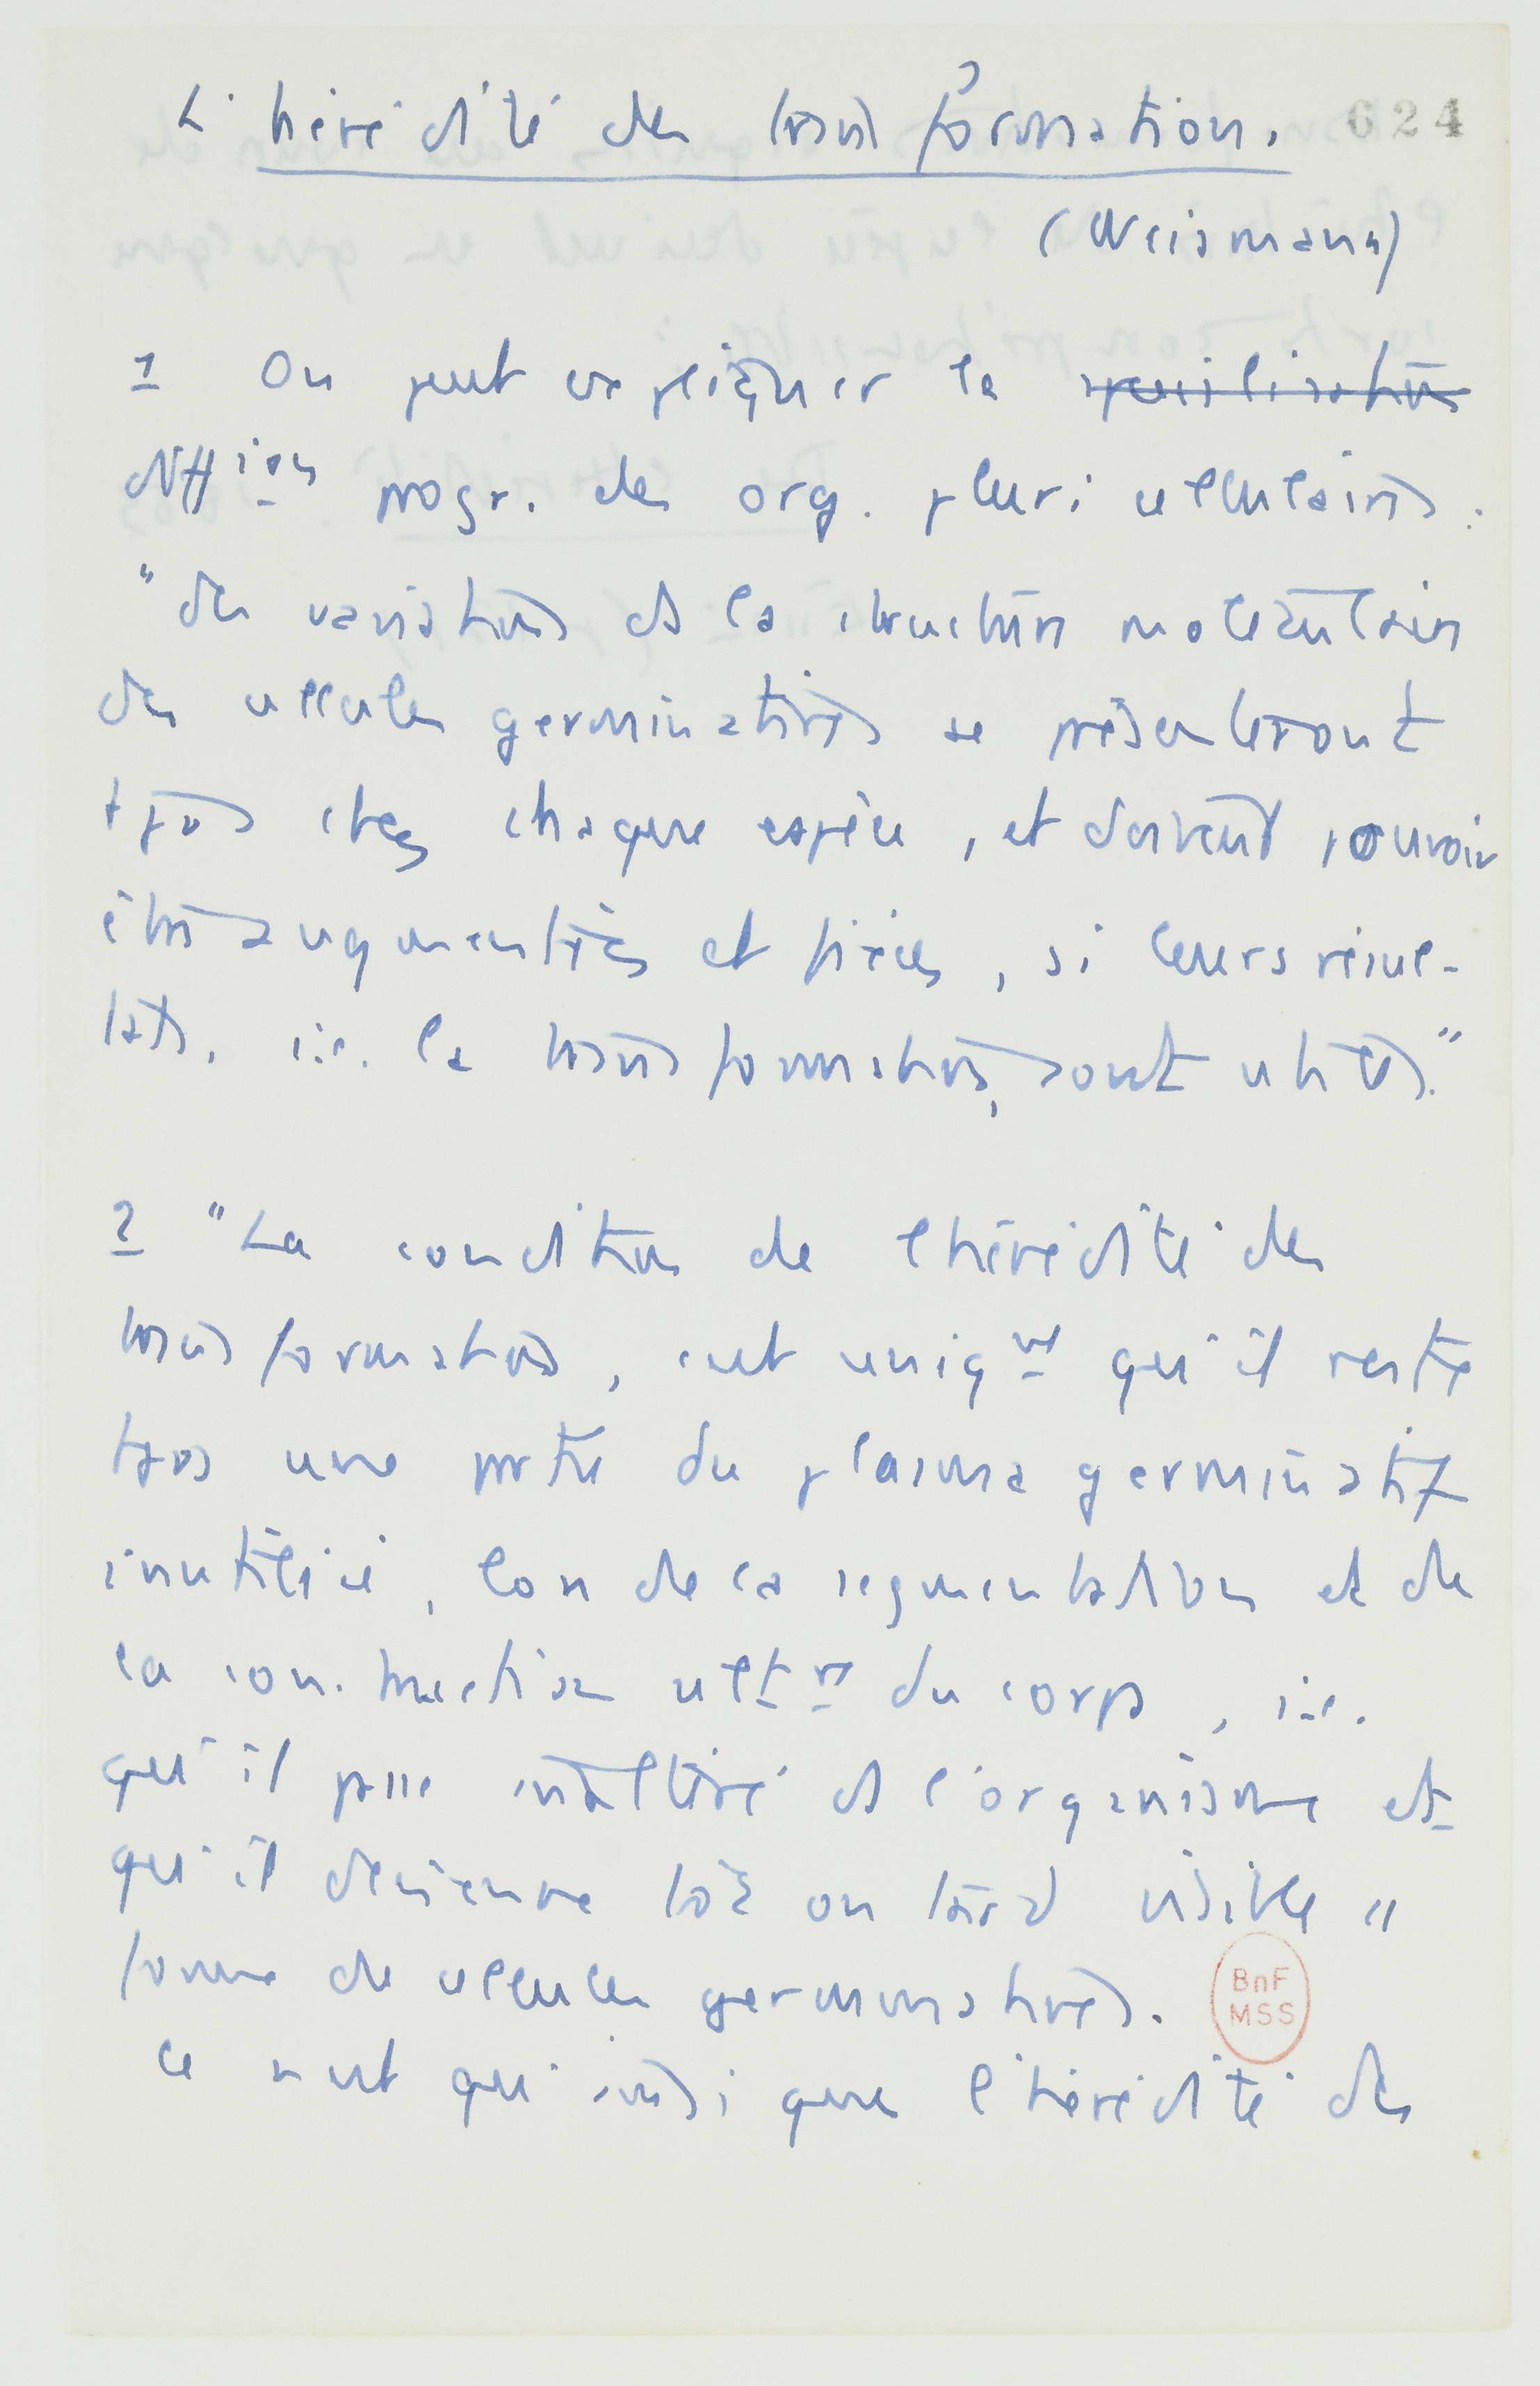 L'hérédité des transformation.
624
(Weismann)
1 On peut expliquer la spécialisation
diff ion progr. des org. pluricellulaires :
"des variations ds la structure moléculaire
des cellules germinatives se présenteront
tjours chez chaque espèce, et doivent pouvoir
être augmentées et fixées, si leurs résul-
tats, i.e. la transformations, sont utiles."
2 "La condition de l'hérédité des
transformations, c'est uniq mt qu'il reste
tjrs une partie du plasma germinatif
inutilisé, lors de la segmentation et de
la construction ult re du corps, i.e.
qu'il passe inaltéré ds l'organisme et
qu'il devienne tôt ou tard visible ss
forme de cellules germinatives.
BnF
MSS
Ce n'est qu'ainsi que l'hérédité des